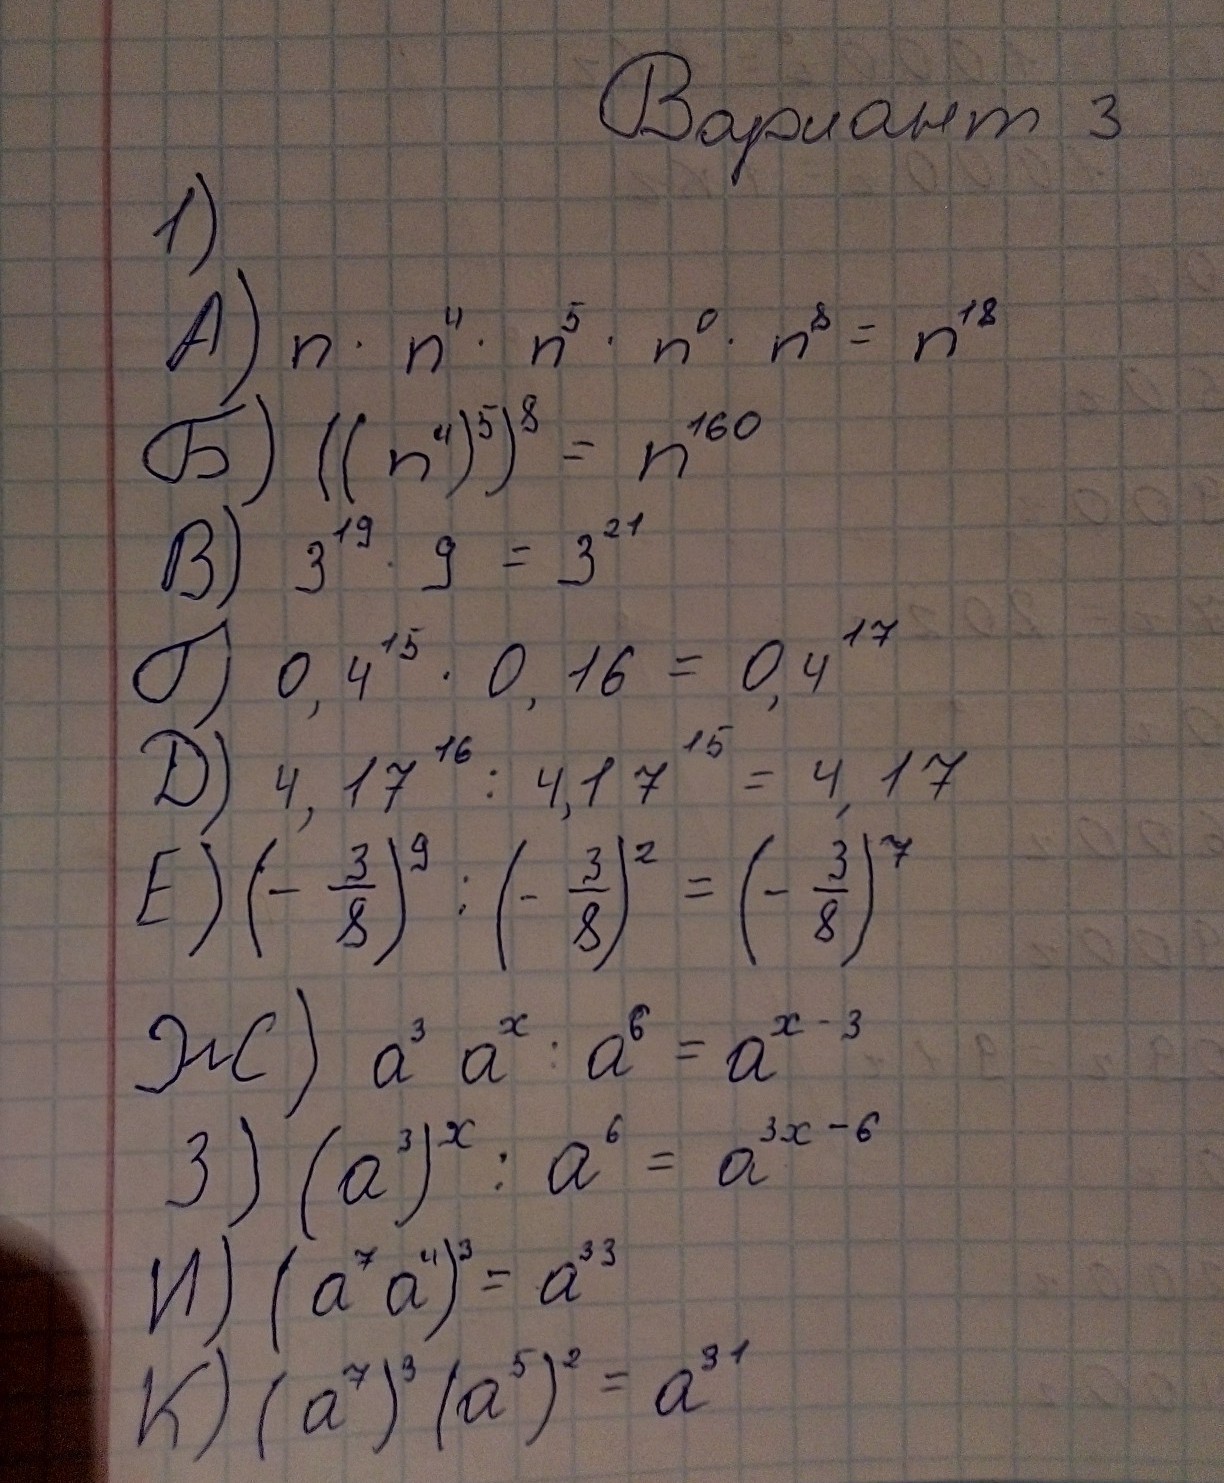 Вариант 3
1)
А) n · n⁴ · n⁵ · n⁰ · n⁸ = n¹⁸
Б) ((n⁴)⁵)⁸ = n¹⁶⁰
В) 3¹⁹ · 9 = 3²¹
Г) 0,4¹⁵ · 0,16 = 0,4¹⁷
D) 4,17¹⁶ : 4,17¹⁵ = 4,17
Е) (- 3/8)⁹ : (- 3/8)² = (- 3/8)⁷
Ж) a³ aˣ : a⁶ = aˣ⁻³
З) (a³)ˣ : a⁶ = a³ˣ⁻⁶
И) (a⁷ a⁴)³ = a³³
К) (a⁷)³ (a⁵)² = a³¹